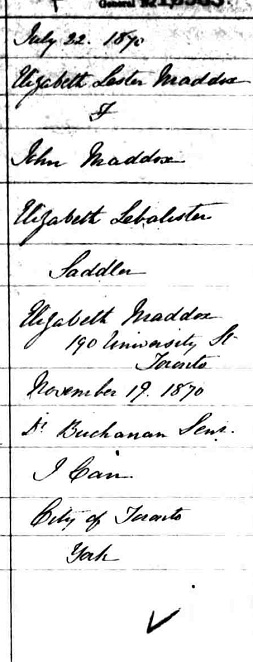 General
July 22. 1870
Elizabeth Lester Maddox
F
John Maddox
Elizabeth
Saddler
Elizabeth Maddox
190 University St
Toronto
November 19. 1870
Dr Buchanan Senr.
City of Toronto
York